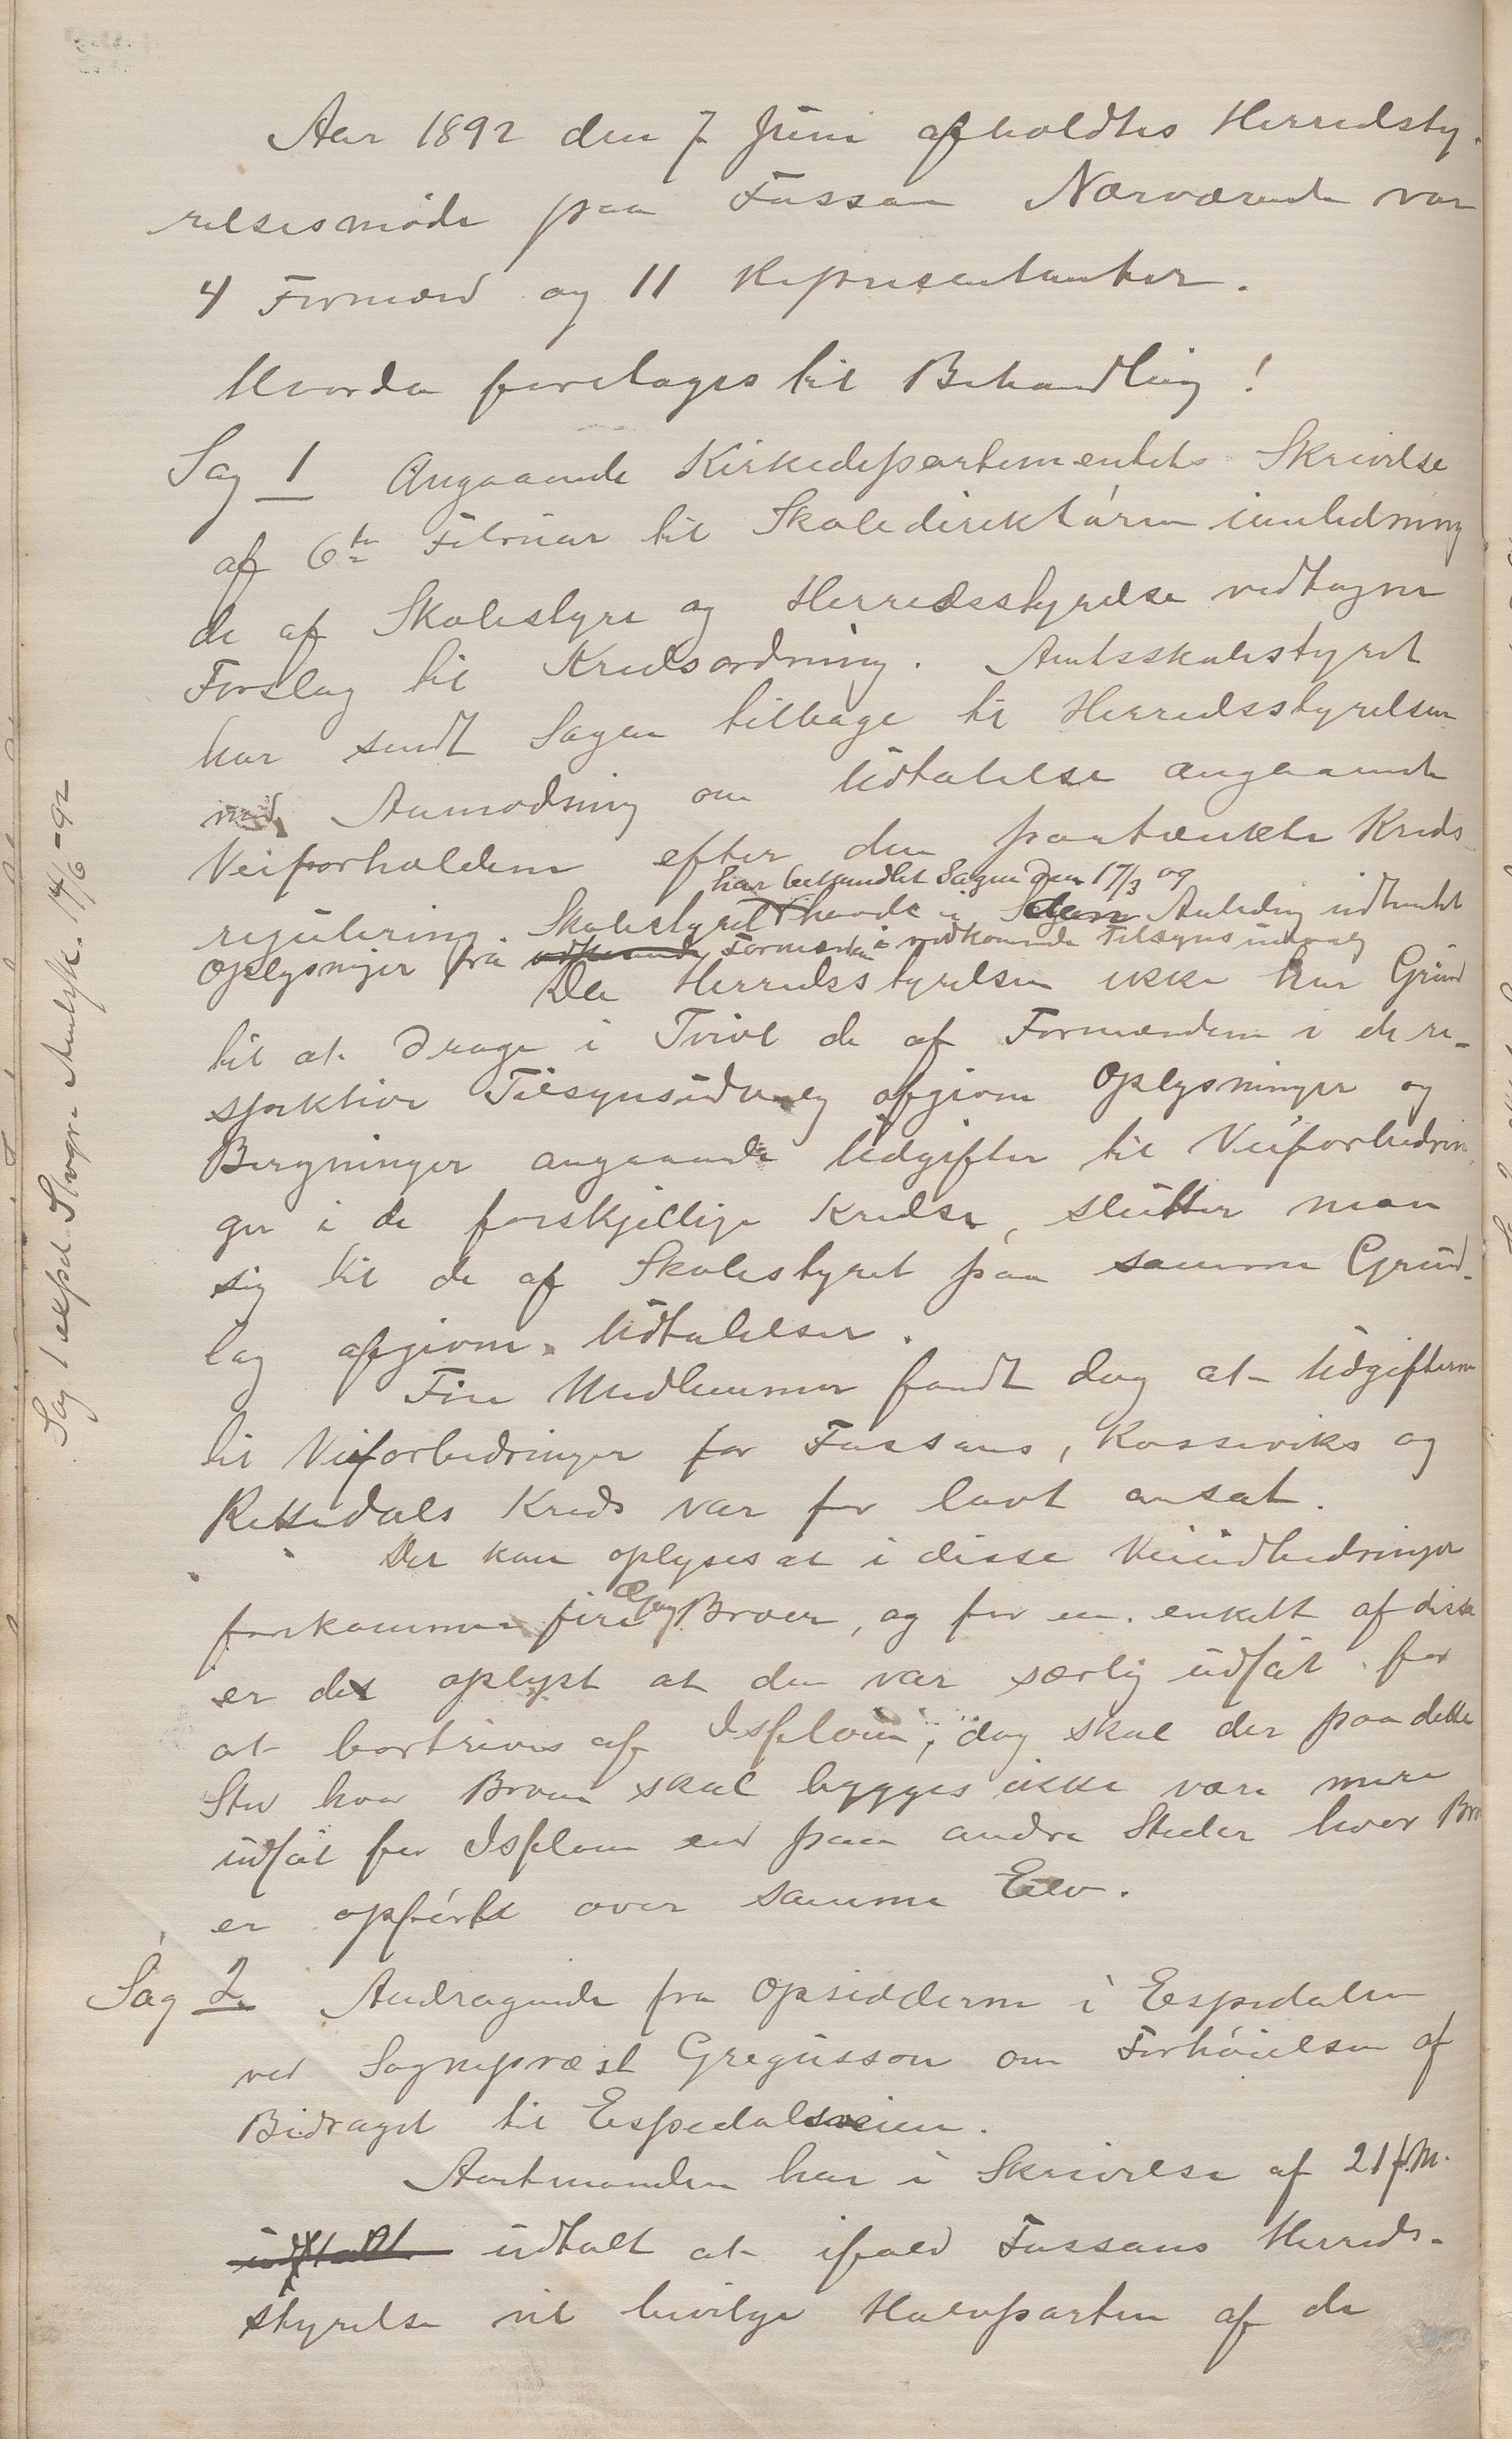 Aar 1892 den 7 Juni afholdtes Herredsty-
relsesmøde paa Fossan Nærværende var
4 Formænd og 11 Representanter.
Hvorda foretages til Behandling!
Sag 1 Angaaende Kirkedepartementets Skrivelse
af 6te Februar til Skoledirektøren ianledning
de af Skolestyre og Herredsstyrelse vedtagne
Forslag til Kredsordning. Amtsskolestyret
har sendt Sagen tilbage til Herredsstyrelsen
med Anmodning om Udtalelse angaaende
Veiforholdene efter den paatænkte Kreds-
har behandlet Sagen den 17/3 og
regulering. Skolestyret havde i Sagens Anledng indhentet
Oplysninger fra Formænden i vedkommende Tilsynsudvalg
Da Herredsstyrelsen ikke har Grund
til at drage i Tvivl de af Formændene i de re-
spektive Tilsynsudvalg afgivne Oplysninger og
Beregninger angaaende Udgifter til Veiforbedrin-
ger i de forskjellige Kredse, slutter man
sig til de af Skolestyret paa samme Grund-
lag afgivne Udtalelser.
Fire Medlemmer fandt dog at Udgifterne
til Veiforbedringer for Fossans, Kosseviks og
Rettedals Kreds var for lavt ansat.
Det kan oplyses at i disse Veiudbedringer
forekommer fire Gang Broer, og for en enkelt af disse
er det oplyst at den var særlig udsat for
at bortrives af Isflom; dog skal der paa dette
Sted hvor Broen skal bygges ikke være mere
udsat for Isflom end paa andre Steder hvor Bro
er opført over samme Elv.
Sag 2 Andragende fra Opsidderne i Espedalen
ved Sogneprest Gregusson om Forhøielsen af
Bidraget til Espedalsveien.
Amtmanden har i Skrivelse af 21 f.M.
udtalt at ifald Fossans Herreds-
styrelse vil bevilge Halvparten af de
Sag 1 expd. Stvgr. Amtssk. 14/6-92